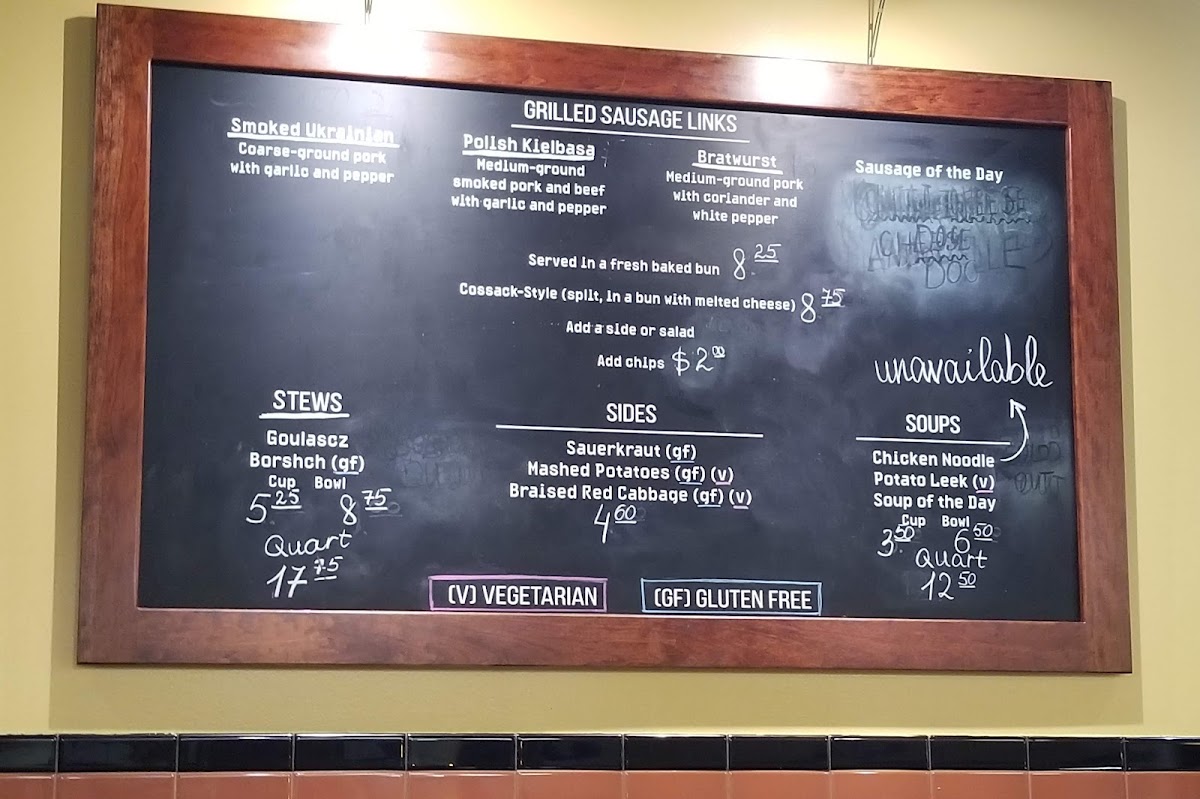 GRILLED SAUSAGE LINKS
Smoked Ukrainian
Coarse-ground pork
with garlic and pepper
Polish Kielbasa
Medium-ground
smoked pork and beef
with garlic and pepper
Bratwurst
Medium-ground pork
with coriander and
white pepper
Sausage of the Day
Served in a fresh baked bun 8.25
Cossack-Style (split, in a bun with melted cheese) 8 75
Add a side or salad
Add chips $2 00
unavailable
STEWS
Goulascz
Borshch (gf)
Cup Bowl
5.25 8 75
Quart
17 75
SIDES
Sauerkraut (gf)
Mashed Potatoes (gf) (v)
Braised Red Cabbage (gf) (v)
4 60
SOUPS
Chicken Noodle
Potato Leek (v)
Soup of the Day
Cup Bowl
3.50 6 50
Quart
12 50
(V) VEGETARIAN
(GF) GLUTEN FREE